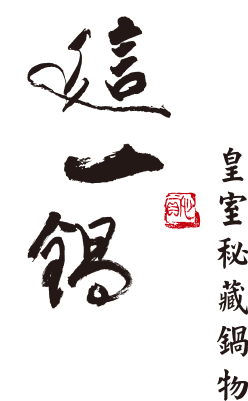 這一鍋
皇室秘藏鍋物